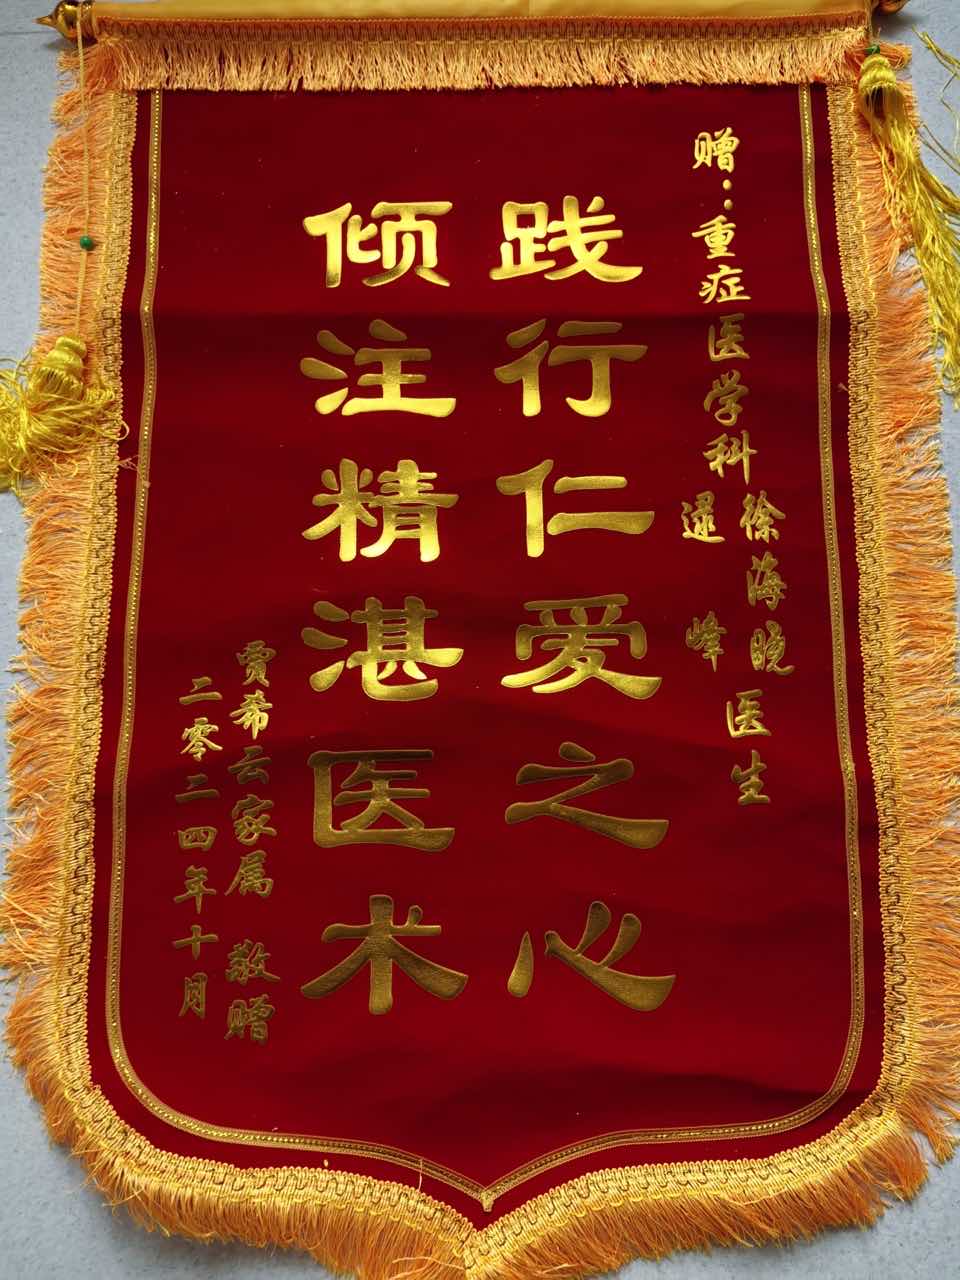 赠：重症医学科
徐海晓
逯峰
医生
践行仁爱之心
倾注精湛医术
贾希云家属 敬赠
二零二四年十月